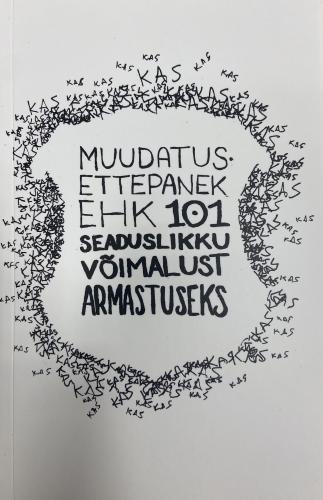 KAS
MUUDATUS-
ETTEPANEK
EHK 101
SEADUSLIKKU
VÕIMALUST
ARMASTUSEKS